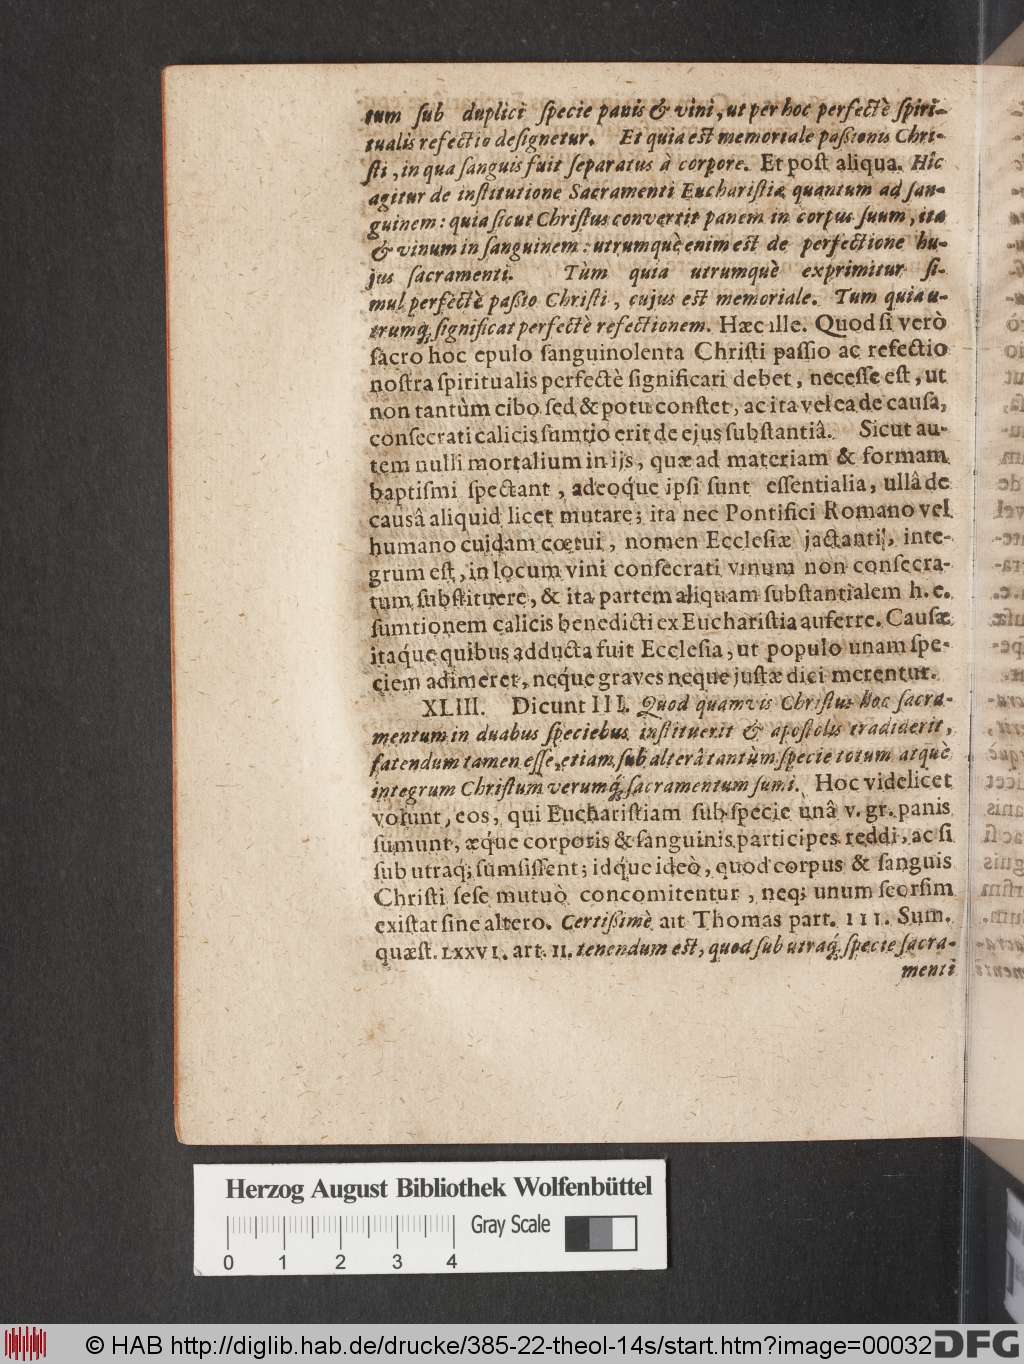 tum ſub duplici ſpecie panis & vini, ut per hoc perfectè ſpiri-
tualis refectio deſignetur. Et quia est memoriale paßionis Chri-
ſti, in qua ſanguis fuit ſeparatus à corpore. Et poſt aliqua. Hîc
agitur de inſtitutione Sacramenti Euchariſtiæ quantum ad ſan-
guinem: quia ſicut Chriſtus convertit panem in corpus ſuum, ita
& vinum in ſanguinem: utrumquè enim est de perfectione hu-
jus ſacramenti. Tùm quia utrumquè exprimitur ſi-
mul perfectè paßio Chriſti, cujus est memoriale. Tum quia u-
trumq́; ſignificat perfectè refectionem. Hæc ille. Quod ſi verò
ſacro hoc epulo ſanguinolenta Chriſti paſſio ac refectio
noſtra ſpiritualis perfectè ſignificari debet, neceſſe eſt, ut
non tantùm cibo ſed & potu conſtet, ac ita vel ea de cauſa,
conſecrati calicis ſumtio erit de ejus ſubſtantiâ. Sicut au-
tem nulli mortalium in ijs, quæ ad materiam & formam
baptiſmi ſpectant, adeoq́ue ipſi ſunt eſſentialia, ullâ de
causâ aliquid licet mutare; ita nec Pontifici Romano vel
humano cuidam cœtui, nomen Eccleſiæ jactanti, inte-
grum eſt, in locum vini conſecrati vinum non conſecra-
tum ſubſtituere, & ita partem aliquam ſubſtantialem h. e.
ſumtionem calicis benedicti ex Euchariſtia auferre. Cauſæ
itaq́ue quibus adducta fuit Eccleſia, ut populo unam ſpe-
ciem adimeret, neq́ue graves neque juſtæ dici merentur.
XLIII. Dicunt III. Quod quamvis Chriſtus hoc ſacra-
mentum in duabus ſpeciebus inſtituerit & apoſtolis tradiderit,
fatendum tamen eſſe, etiam ſub alterâ tantùm ſpecie totum atquè
integrum Chriſtum verumq́; ſacramentum ſumi. Hoc videlicet
volunt, eos, qui Euchariſtiam ſub ſpecie unâ v. gr. panis
ſumunt, æq́ue corporis & ſanguinis participes reddi, ac ſi
ſub utraq; ſumſiſſent; idq́ue ideò, quod corpus & ſanguis
Chriſti ſeſe mutuò concomitentur, neq; unum ſeorſim
exiſtat ſine altero. Certißimè ait Thomas part. III. Sum.
quæſt. LXXVI. art. II. tenendum est, quod ſub utraq́; ſpecie ſacra-
menti
Herzog August Bibliothek Wolfenbüttel
Gray Scale
0 1 2 3 4
© HAB http://diglib.hab.de/drucke/385-22-theol-14s/start.htm?image=00032
DFG